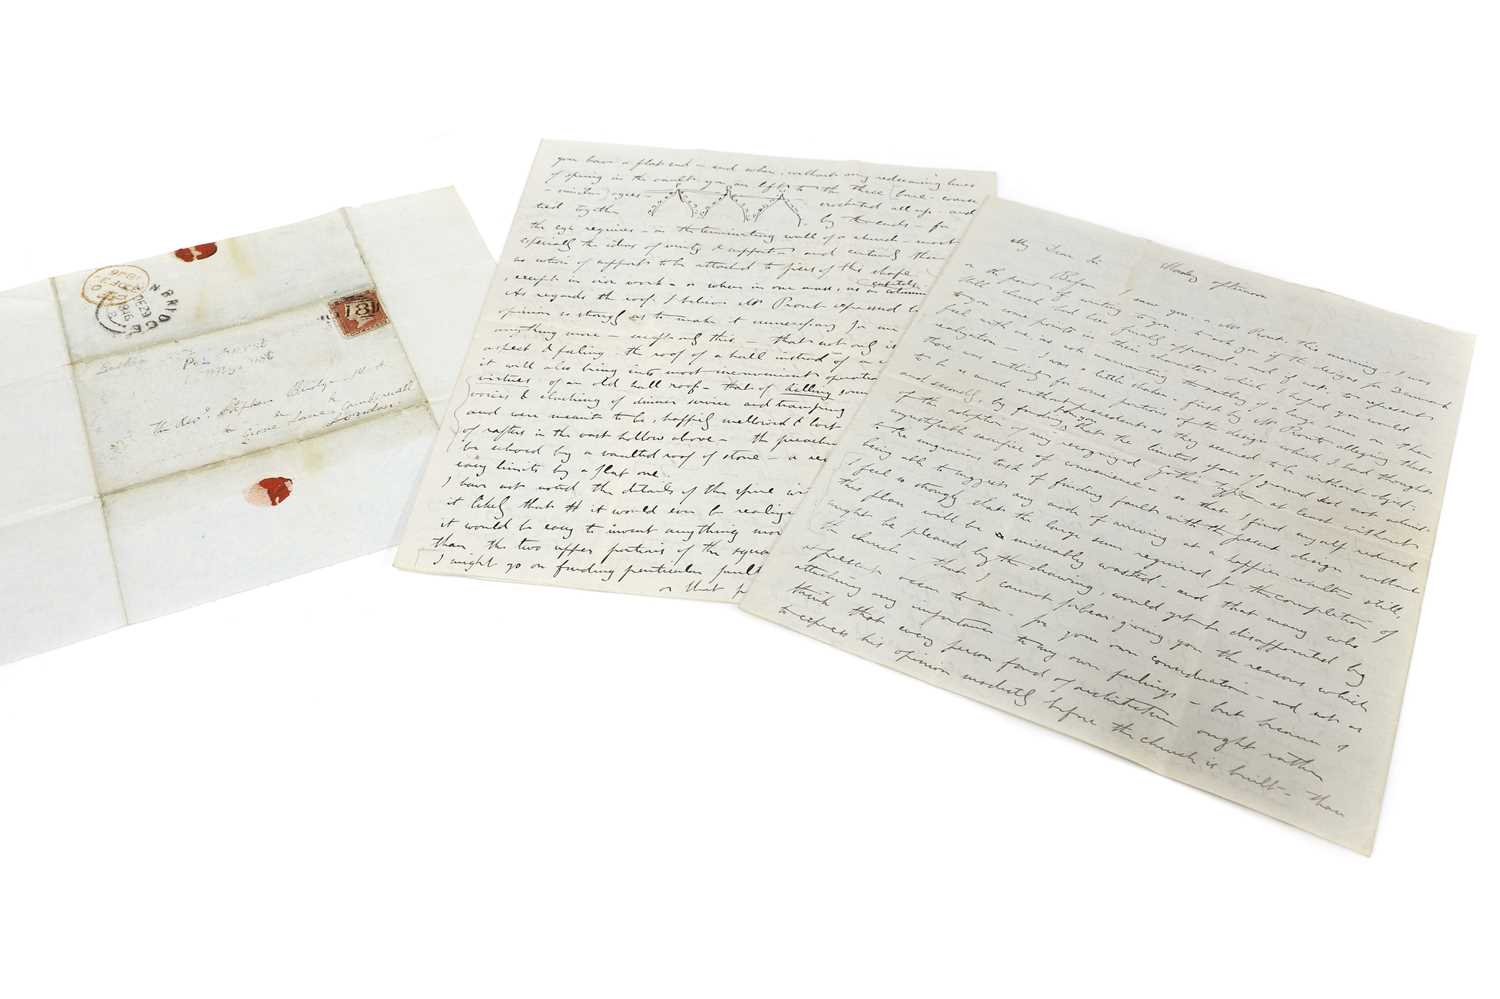 DE 29
1846
N BRIDGE
18
The Revd Stephen Bridge
Grove Lane Camberwell
London
you have a flat end - and when, without any redeeming lines
of spring in the vaults you are left to the three bare coarse
- similar ogees - crocketed all up - and
tied together by the ends - for
the eye requires - in the terminating wall of a church - most
especially the ideas of unity & support - and certainly there
no notion of support to be attached to piers of this shape
, except in iron work - or when in one mass, as in columns
capitals
As regards the roof, I believe Mr Prout expressed to
opinion so strongly as to make it unnecessary for me
anything more - except only this - that not only is
aspect & feeling the roof of a hall instead of a
it will also bring into most inconvenient operation
virtues of an old hall roof - that of killing sound
voices & clinking of dinner service and tramping
and were meant to be, happily mellowed & lost
of rafters in the vast hollow above - the preacher
be echoed by a vaulted roof of stone -
easy limits by a flat one.
I have not noted the details of the spire
it likely that it would ever be realized
it would be easy to invent anything more
than the two upper portions of the square
I might go on finding particular faults
or that
Monday afternoon
My Dear Sir
Before I saw you - & Mr Prout this morning, I was
on the point of writing to you - to ask you if the designs for Camberwell
Church had been finally approved, and if not, to represent
to you some points in their character which I hoped you would
feel with me as not warranting the outlay of a large sum on their
realization - I was a little shaken - first by Mr Prout's alleging that
there was authority for some portions of the design - which I had thought
to be as much without precedent as they seemed to be without object;
and secondly, by finding that the limited space of ground did not admit
of the adoption of any recognized Gothic type - at least without
unjustifiable sacrifice of convenience - so that I find myself reduced
to the ungracious task of finding faults with the present design without
being able to suggest any mode of arriving at a happier result - Still,
I feel so strongly that the large sum required for the completion of
this plan will be miserably wasted - and that many who
might be pleased by the drawing, would yet be disappointed by
the church - that I cannot forbear giving you the reasons which
at present occur to me - for your own consideration - and not as
attaching any importance to my own feelings - but because I
think that every person fond of architecture ought rather
to express his opinion modestly before the church is built - than